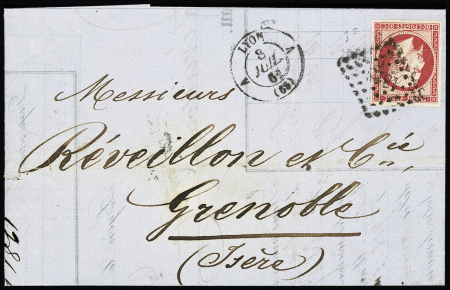 LYON
A A
8
JUIL.
(68)
Messieurs
Réveillon et Cie
Grenoble
(Isère)